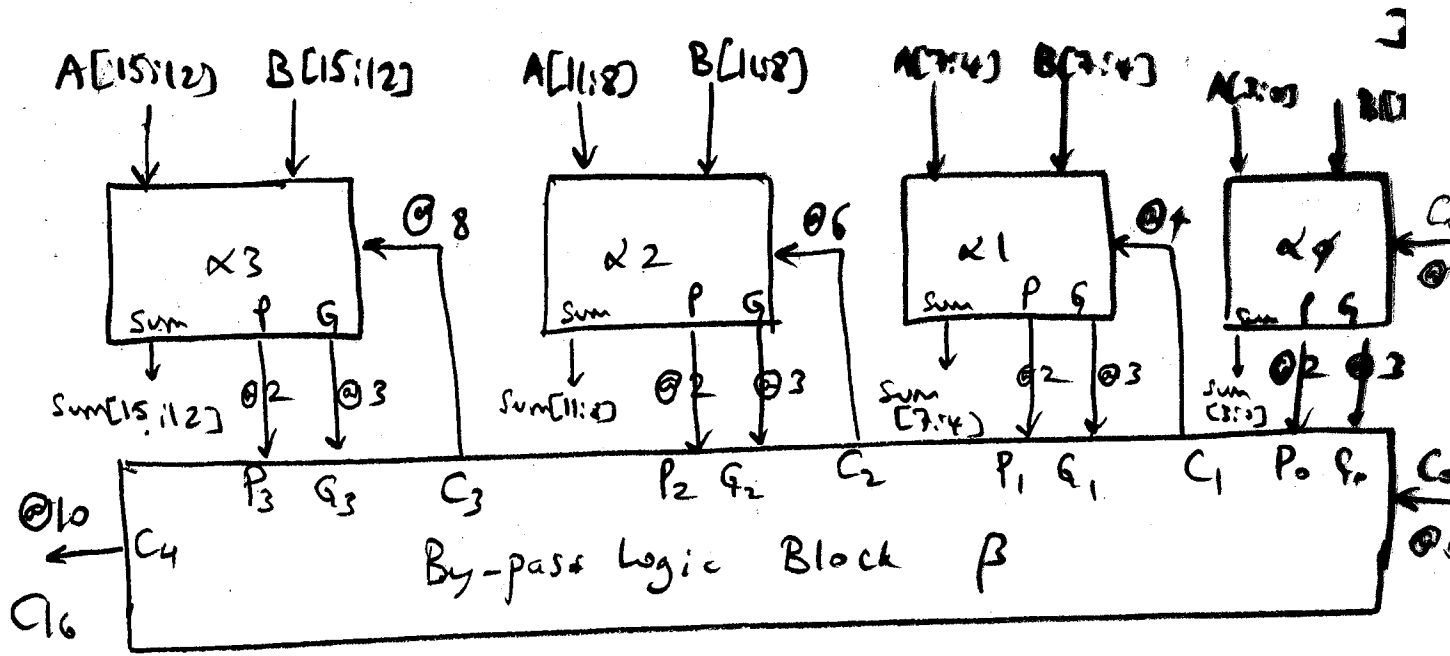 A[15:12] B[15:12] A[11:8] B[11:8] A[7:4] B[7:4] A[3:0] B[
@8 @6 @4 C
α3 α2 α1 αφ @
Sum P G Sum P G Sum P G Sum P G
@2 @3 @2 @3 @2 @3 @2 @3
Sum[15:12] Sum[11:8] Sum [7:4] Sum [3:0]
P3 G3 C3 P2 G2 C2 P1 G1 C1 P0 G0 C0
@10 C4 By-pass Logic Block β @
C16